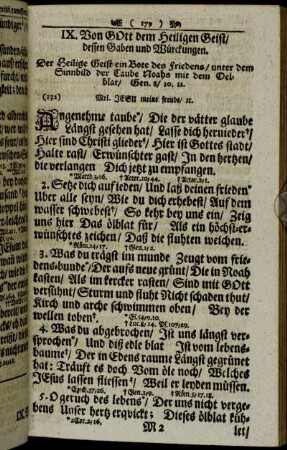 ( 179 )
IX. Von GOtt dem Heiligen Geist/
dessen Gaben und Würckungen.
Der Heilige Geist ein Bote des Friedens/ unter dem
Sinnbild der Taube Noahs mit dem Oel-
blat/ Gen. 8/ 10. 11.
(132) Mel. JESU meine freude/ ꝛc.
Angenehme taube/ Die der vätter glaube
Längst gesehen hat/ Lasse dich hernieder/
Hier sind Christi glieder/ Hier ist Gottes stadt/
Halte rast/ Erwünschter gast/ In den hertzen/
die verlangen Dich jetzt zu empfangen.
2. Setze dich auf jeden/ Und laß deinen frieden
Uber alle seyn/ Wie du dich erhebest/ Auf dem
wasser schwebest/ So kehr bey uns ein/ Zeig
uns hier Das ölblat für/ Als ein höchst-er-
wünschtes zeichen/ Daß die fluhten weichen.
3. Was du trägst im munde Zeugt vom frie-
dens-bunde/ Der aufs neue grünt/ Die in Noah
kasten/ Als im kercker rasten/ Sind mit GOtt
versühnt/ Sturm und fluht Nicht schaden thut/
Kirch und arche schwimmen oben/ Bey der
wellen toben.
4. Was du abgebrochen/ Ist uns längst ver-
sprochen/ Und diß edle blat Ist vom lebens-
baume/ Der in Edens raume Längst gegrünet
hat: Träuft es doch Vom öle noch/ Welches
JEsus lassen fliessen/ Weil er leyden müssen.
5. O geruch des lebens/ Der uns nicht verge-
bens Unser hertz erqvickt; Dieses ölblat küh-
M 2 let/